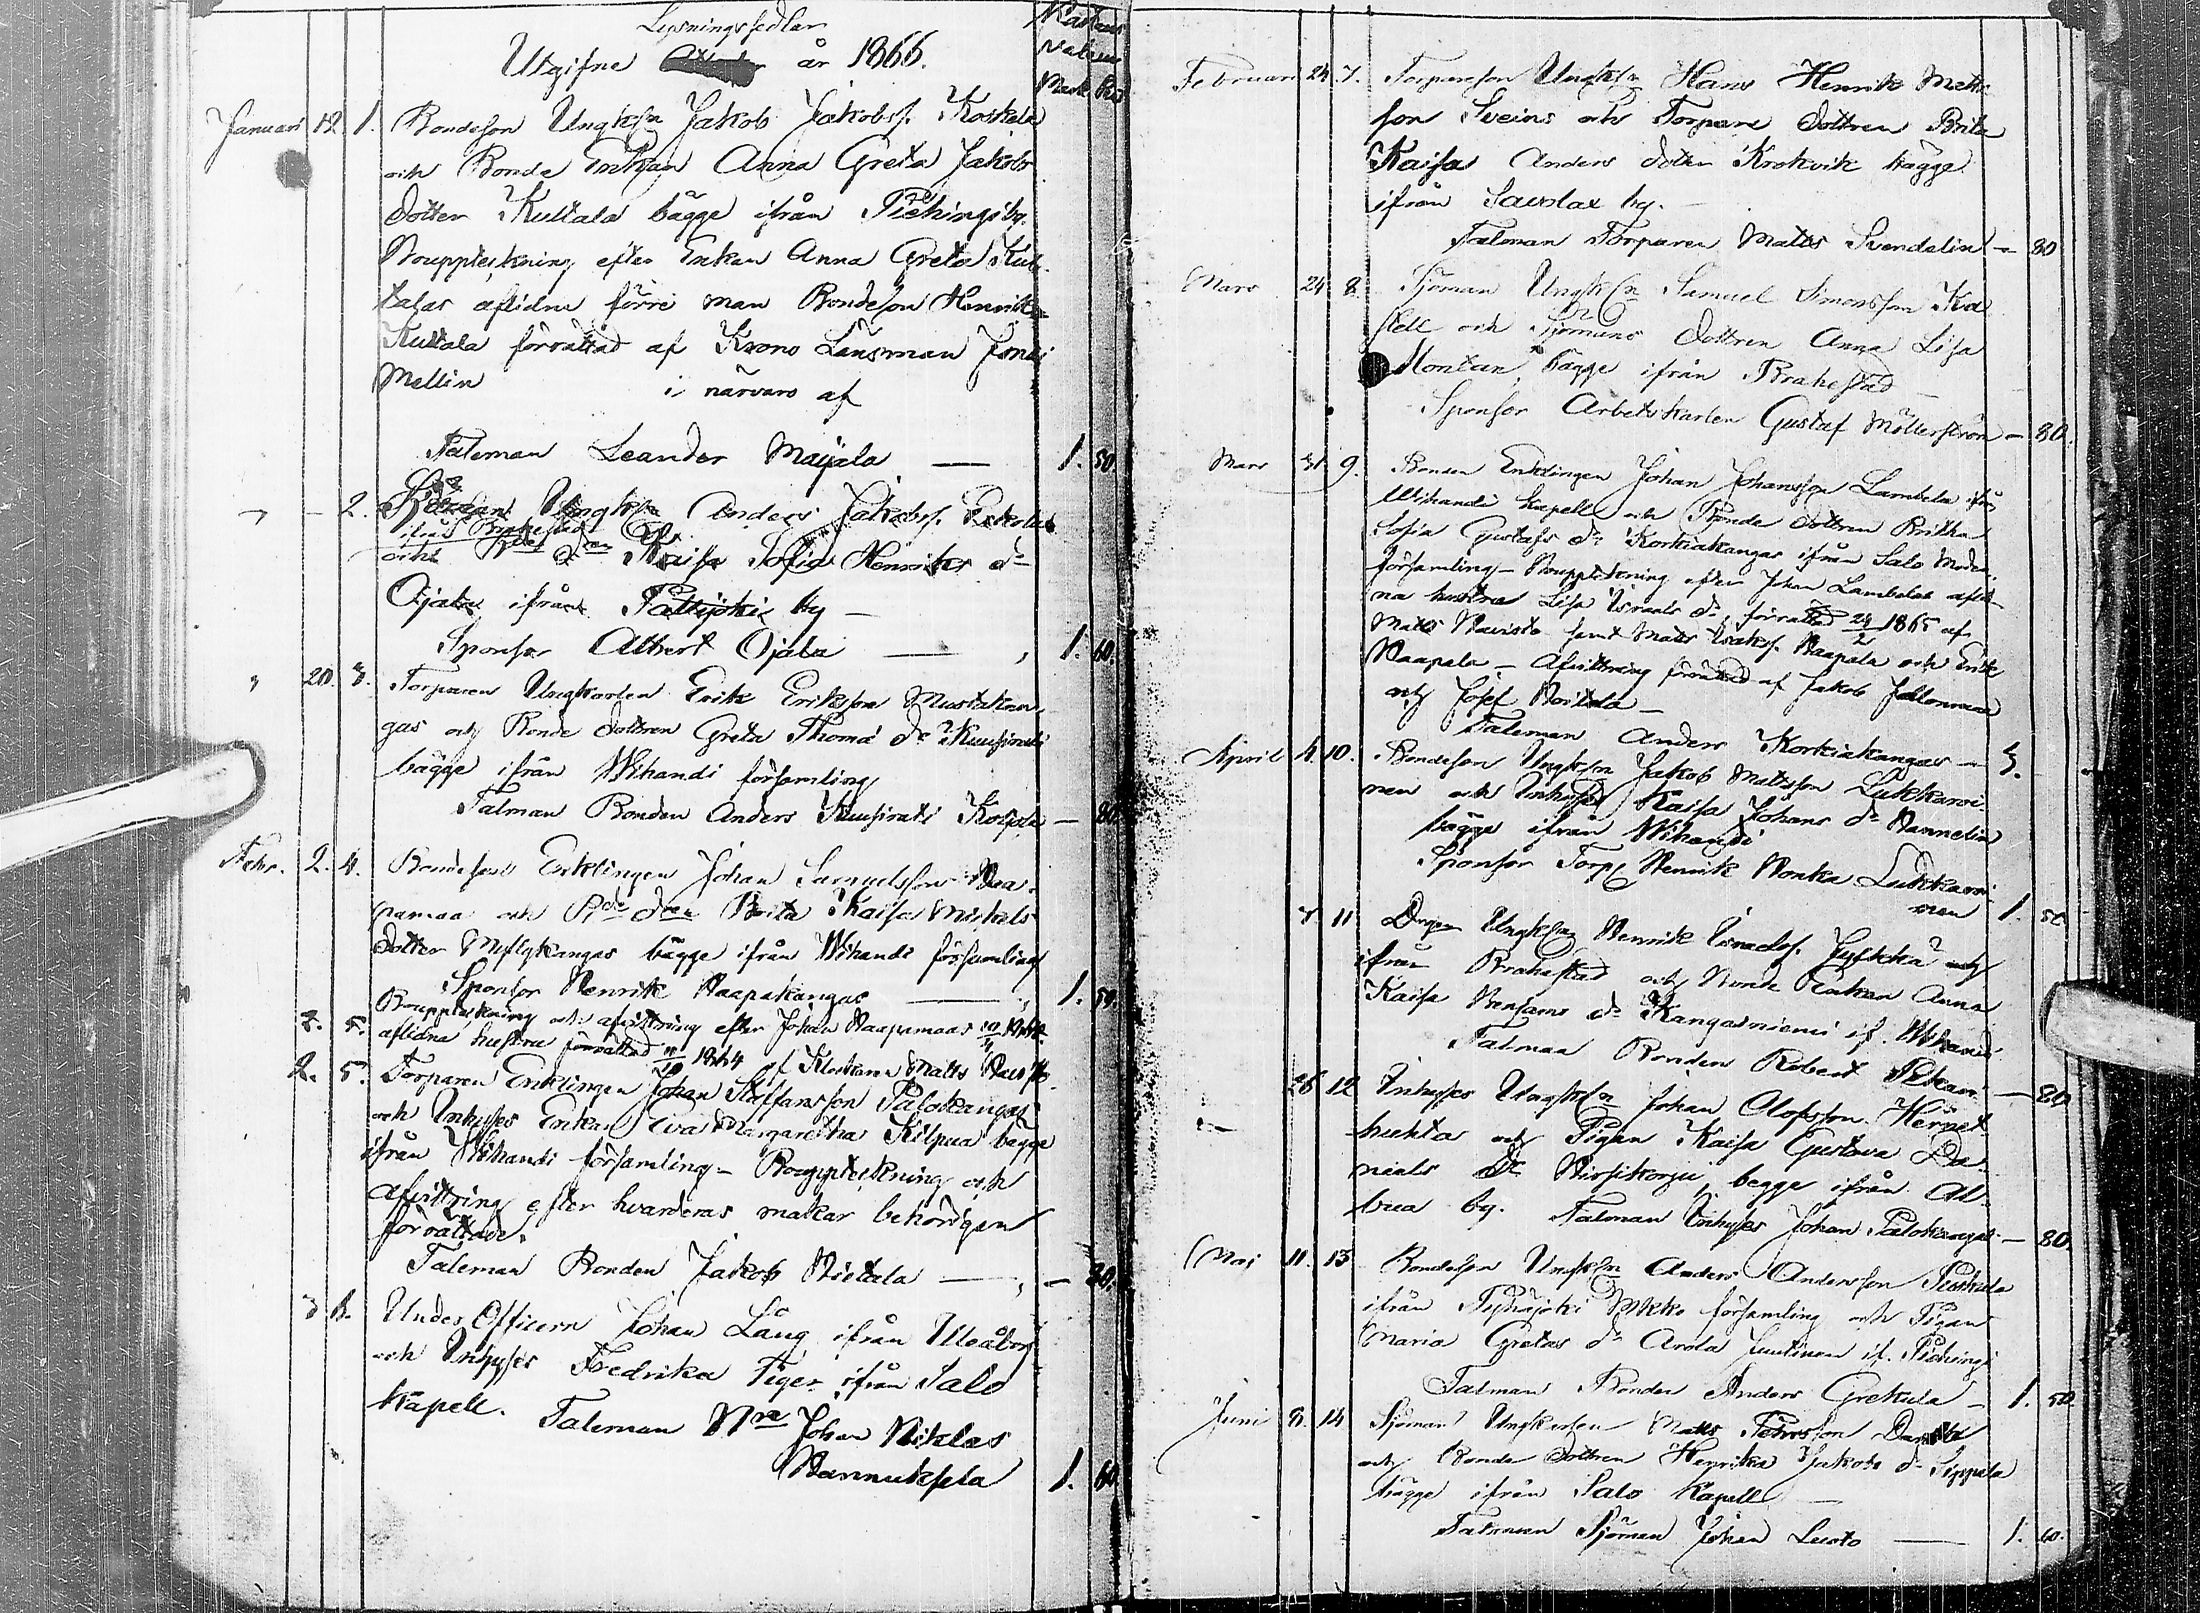 Lysningssedlar
Utgifne år 1866.
Mark
Januari 12 1. Bondeson Ungk:n Jakob Jakobss. Koskela
och Bonde Enkan Anna Greta Jakobs
dotter Kultala bägge ifrån Piehingi by.
Bouppteckning efter Enkan Anna Greta Kul-
talas aflidne förre man Bondeson Henrik
Kultala förrättad af Krono Länsman Jonas
Mellin i närvaro af
Taleman Leander Maijala — 1. 50.
" – 2. Ungk:n Anders Jakobss.
ifrån Brahestad
och Kaisa Sofia Henriks d:r
Ojala ifrån Pattijoki by —
Sponsor Albert Ojala — 1. 60.
" 20. 3. Torparen Ungkarlen Erik Eriksson Mustakan-
gas och Bonde dottren Greta Thoma d:r Kuusirati
bägge ifrån Wihandi församling
Talman Bonden Anders Kuusirati — 80.
Febr. 2. 4. Bondeson Enklingen Johan Samuelsson Haa-
pamaa och Brita Kaisa Mickels
dotter Myllykangas bägge ifrån Wihandi församling
Sponsor Henrik Haapakangas — 1. 50.
Bouppteckning och afvittring efter Johan Haapamaas
2. 5. aflidna hustru förrättad 1864 af Klockaren Matts
2. 5. Torparen Enklingen Johan Staffansson Palokangas
och Inhyses Enkan Eva Margaretha Kilpua bägge
ifrån Wihandi församling – Bouppteckning och
afvittring efter hvarderas makar behörigen
förrättade.
Taleman Bonden Jakob Hietala — 80.
3 6. Under Officern Johan Lång ifrån Uleåborg
och Inhyses Fredrika Tiger ifrån Salo
Kapell. Taleman Johan Niklas
Hannuksela 1. 60.
Februari 24 7. Torpareson Ungk:n Hans Henrik Matts-
son Sveins och Torpare dottren Brita
Kaisa Anders dotter Krokvik bägge
ifrån Savolax by. —
Talman Torparen Matts Svendelin — 80
Mars 24 8. Sjöman Ungk:n Samuel Simonsson
och Sjömans dottren Anna Lisa
Montin, bägge ifrån Brahestad —
Sponsor Arbetskarlen Gustaf Möllerström — 80.
Mars 31 9. Bonden Enklingen Johan Johansson Lambela ifrån
Wihandi Kapell och Bonde dottren Britha
Sofia Gustafs d:r Korkiakangas ifrån Salo Moder-
församling – Bouppteckning efter Johan Lambelas aflid-
na hustru Lisa Israels d:r, förrättad 24/2 1865 af
Matts samt Matts Isakss. Haapala och Erik
Haapala – Afvittring förrättad af Jakob
och Josef —
Taleman Anders Korkiakangas — 3.
April 4 10. Bondeson Ungk:n Jakob Mattsson Lukkaroi-
nen och Inhyses Kaisa Johans d:r Hannelin
bägge ifrån Wihandi
Sponsor Torp. Henrik Lukkaroi-
nen 1. 50
7 11 Dreng Ungk:n Henrik Israelss. Jylkkä
ifrån Brahestad och Bonde Enkan Anna
Kaisa d:r Kangasniemi if. Wihandi
Talman Bonden Robert — 80
26 12 Inhyses Ungk:n Johan Olofsson Hernet-
huhta och Pigan Kaisa Gustava Da-
niels D:r Hirsikorpi, begge ifrån Al-
bua by. Talman Inhyses Johan Palokangas — 80.
Maj 11. 13 Bondeson Ungk:n Anders Andersson
ifrån församling och Pigan
Maria Gretas d:r Arola Juntinen if. Piehingi
Talman Bonden Anders Grekula — 1. 50.
Juni 8. 14 Sjöman Ungkarlen Matts
och Bonde dottren Henrika Jakobs d:r Sippala
bägge ifrån Salo Kapell —
Talman Sjöman Johan Lusto — 1. 60.